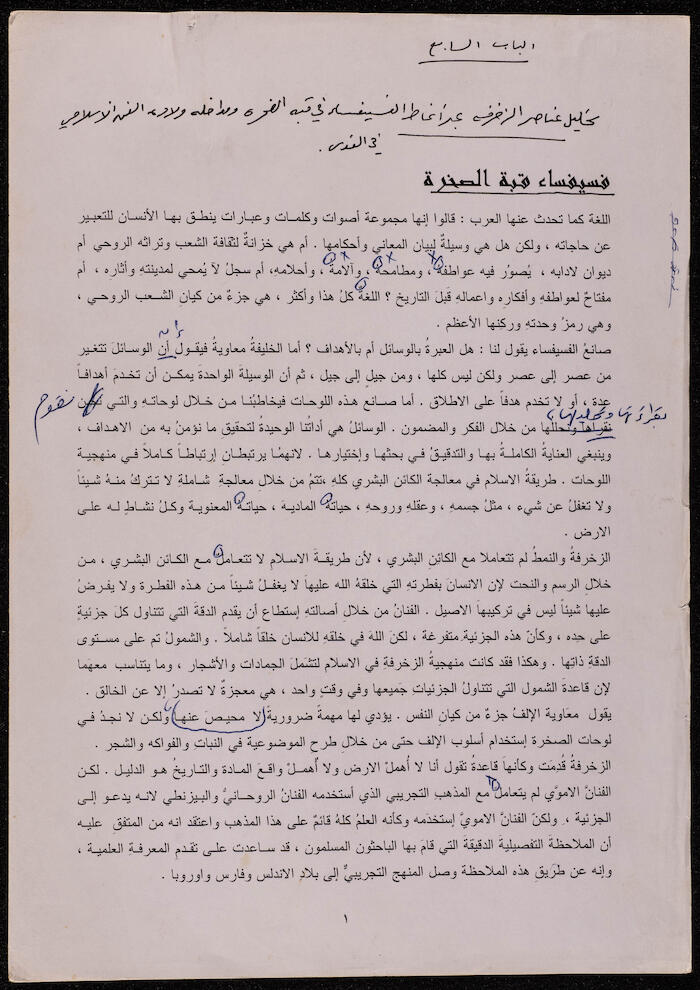 الباب السابع
تحليل عناصر الزخرفة عبر أنماط الفسيفساء في قبة الصخرة ومداخله وولادة الفن الاسلامي
في القدس .
فسيفساء قبة الصخرة
اللغة كما تحدث عنها العرب : قالوا إنها مجموعة أصوات وكلمات وعبارات ينطق بها الأنسان للتعبير
عن حاجاته ، ولكن هل هي وسيلةٌ لبيان المعاني وأحكامها . أم هي خزانةٌ لثقافة الشعب وتراثه الروحي أم
ديوان لادابه ، يُصوّر فيه عواطفهُ ، ومطامحهُ ، وآلامهُ ، وأحلامهِ، أم سجلٌ لاَ يُمحي لمدينتهِ وأثاره ، أم
مفتاحٌ لعواطفهِ وأفكاره واعمالهِ قبلَ التاريخ ؟ اللغةُ كلُ هذا وأكثر ، هي جزءٌ من كيانِ الشعب الروحي ،
وهي رمزُ وحدتهِ وركنها الأعظم .
صانعُ الفسيفساء يقول لنا : هل العبرةُ بالوسائل أم بالأهداف ؟ أما الخليفةُ معاويةُ فيقول أن الوسائلَ تتغير
إن
من عصر إلى عصر ولكن ليس كلها ، ومن جيلٍ إلى جيل ، ثم أن الوسيلةَ الواحدةَ يمكن أن تخدمَ أهدافاً
عدة ، أو لا تخدم هدفاً على الاطلاق . أما صانع هذه اللوحات فيخاطبُنا من خلال لوحاتهِ والتي نحن
نقوم
بقراءتها وتحليلها
نقرأها ونحللها من خلال الفكر والمضمون . الوسائل هي أداتُنا الوحيدة لتحقيق ما نؤمنُ به من الاهداف ،
وينبغي العناية الكاملةُ بها والتدقيقُ في بحثها وإختيارها . لانهمُا يرتبطانِ إرتباطاً كاملاً في منهجية
اللوحات . طريقةُ الاسلام في معالجة الكائن البشري كلهِ ،تتمُ من خلالِ معالجةٍ شاملةٍ لا تتركُ منهُ شيئاً
ولا تغفلُ عن شيء ، مثلُ جسمهِ ، وعقلهِ وروحهِ ، حياتهُ الماديةِ ، حياتهُ المعنوية وكلُ نشاطٍ لهُ على
الارض .
الزخرفةُ والنمطُ لم تتعاملا مع الكائنِ البشري ، لأن طريقةَ الاسلام لا تتعاملُ مع الكائن البشري ، من
خلالِ الرسم والنحت لإن الانسانَ بفطرتهِ التي خلقهُ الله عليها لا يغفلُ شيئاً من هذه الفطرة ولا يفرضُ
عليها شيئاً ليس في تركيبها الاصيل . الفنانُ من خلالِ أصالتهِ إستطاع أن يقدم الدقة التي تتناول كلَ جزئيةٍ
على حِده ، وكأنّ هذه الجزئية متفرغة ، لكنَ اللهَ في خلقهِ للانسان خلقاً شاملاً . والشمولُ تم على مستوى
الدقةِ ذاتها . وهكذا فقد كانت منهجيةُ الزخرفةِ في الاسلام لتشمَلَ الجماداتِ والأشجار ، وما يتناسب معهَما
لإن قاعدةَ الشمول التي تتناولُ الجزئيات جَميعها وفي وقتٍ واحد ، هي معجزةٌ لا تصدرُ إلا عن الخالق .
يقول معاوية الإلفُ جزءٌ من كيانِ النفس . يؤدي لها مهمةً ضروريةً لا محيصَ عنها ولكن لا نجدُ في
لوحاتِ الصخرة إستخدام أسلوب الإلف حتى من خلال طرحِ الموضوعية في النباتِ والفواكه والشجر .
الزخرفةُ قُدمَت وكأنها قاعدةٌ تقول أنا لا أُهملُ الارض ولا أُهمل واقعَ المادة والتاريخُ هو الدليل . لكن
الفنانَ الاموي لم يتعامل مع المذهب التجريبي الذي أستخدمه الفنانُ الروحانيُ والبيزنطي لانه يدعو إلى
الجزئية ، ولكنّ الفنانَ الامويّ إستخدَمه وكأنه العلمُ كلهُ قائمٌ على هذا المذهب واعتقد انه من المتفق عليه
أن الملاحظةَ التفصيليةَ الدقيقةَ التي قامَ بها الباحثون المسلمون ، قد ساعدت على تقدم المعرفةِ العلمية ،
وإنه عن طريقِ هذه الملاحظة وصل المنهج التجريبيُّ إلى بلادِ الاندلس وفارس واوروبا .
١